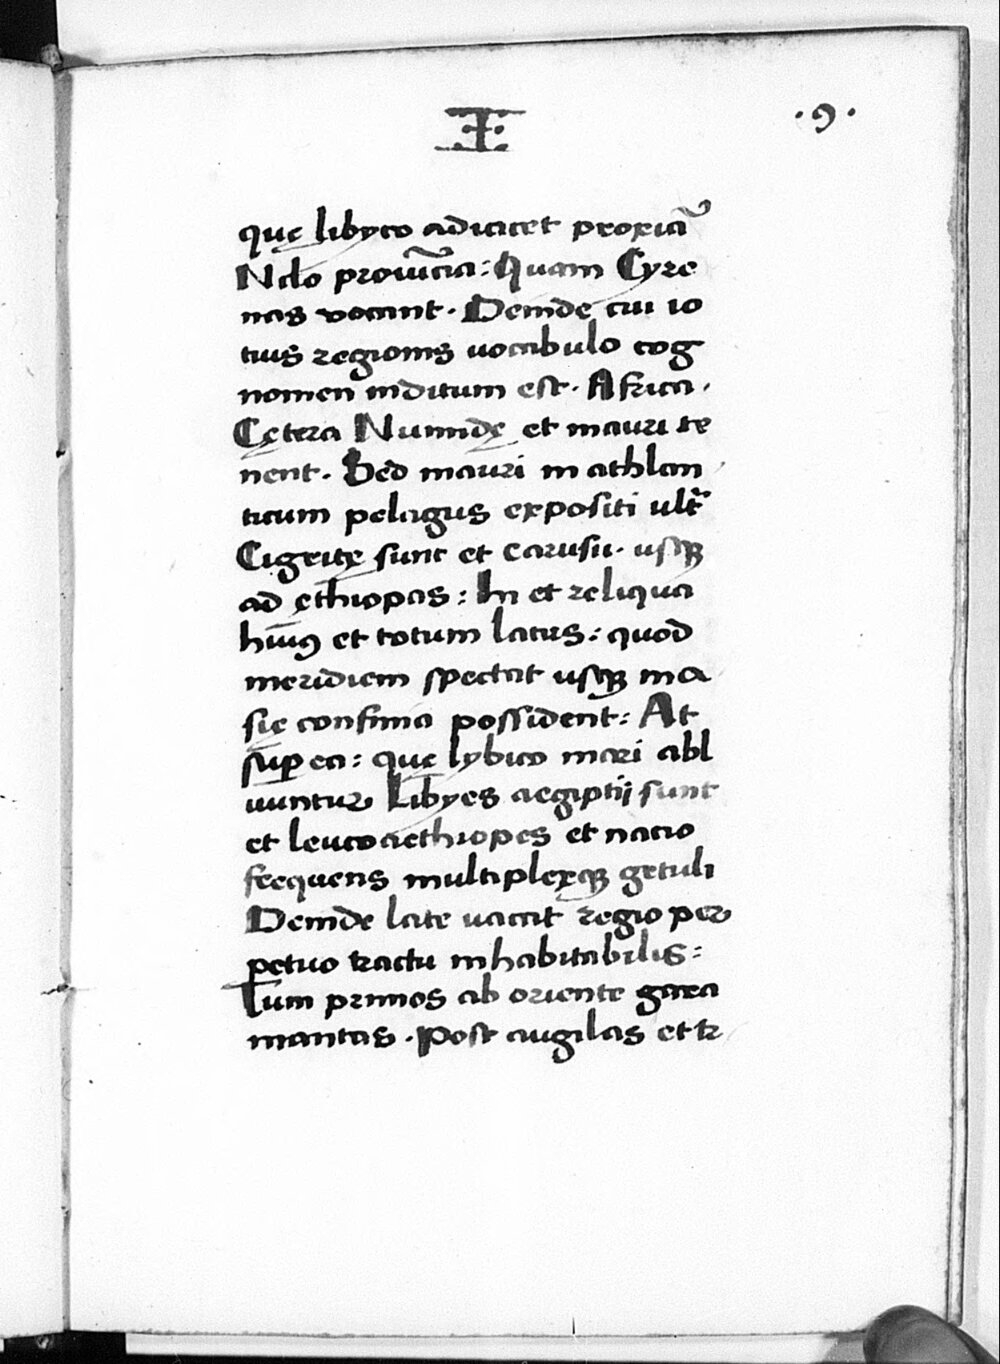 I
·9·
quę libyco adiacet proxiā
Nilo prouĩcia: Quam Cyre
nas vocant. Deinde cui to
tius regionis uocabulo cog
nomen inditum est. Africa.
Cętera Numidę et mauri te
nent. Sed mauri in athlan
ticum pelagus expositi ult͛
Cigritę sunt et carusii. usqꝫ
ad ęthiopas: hi et reliqua
huiꝰ et totum latus: quod
meridiem spectat usqꝫ in a
się confinia possident: At
suꝑ ea: quę lybico mari abl
uuntur Libyes aegiptij sunt
et leucoaethiopes et natio
frequens multiplexqꝫ getuli
Deinde late uacat regio per
petuo tractu inhabitabilis:
Tum primos ab oriente gara
mantas. Post augilas et tr